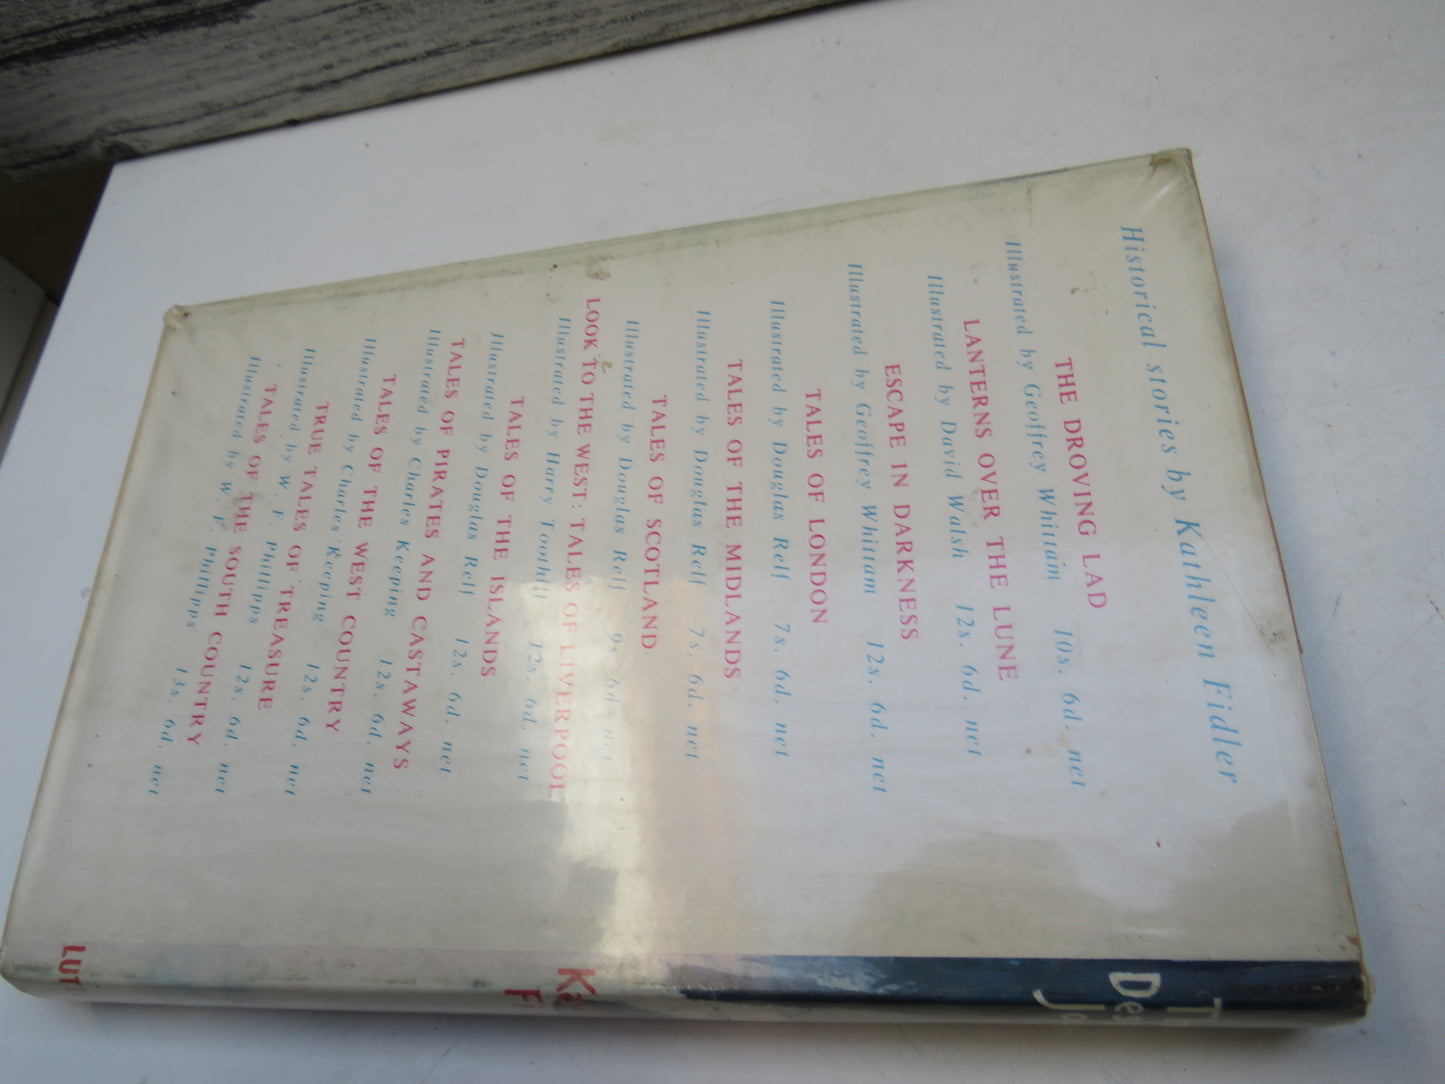 Historical stories by Kathleen Fidler
THE DROVING LAD
Illustrated by Geoffrey Whittam 10s. 6d. net
LANTERNS OVER THE LUNE
Illustrated by David Walsh 12s. 6d. net
ESCAPE IN DARKNESS
Illustrated by Geoffrey Whittam 12s. 6d. net
TALES OF LONDON
Illustrated by Douglas Relf 7s. 6d. net
TALES OF THE MIDLANDS
Illustrated by Douglas Relf 7s. 6d. net
TALES OF SCOTLAND
Illustrated by Douglas Relf 9s. 6d. net
LOOK TO THE WEST: TALES OF LIVERPOOL
Illustrated by Harry Toothill 12s. 6d. net
TALES OF THE ISLANDS
Illustrated by Douglas Relf 12s. 6d. net
TALES OF PIRATES AND CASTAWAYS
Illustrated by Charles Keeping 12s. 6d. net
TALES OF THE WEST COUNTRY
Illustrated by Charles Keeping 12s. 6d. net
TRUE TALES OF TREASURE
Illustrated by W. F. Phillipps 12s. 6d. net
TALES OF THE SOUTH COUNTRY
Illustrated by W. F. Phillipps 13s. 6d. net
LUT